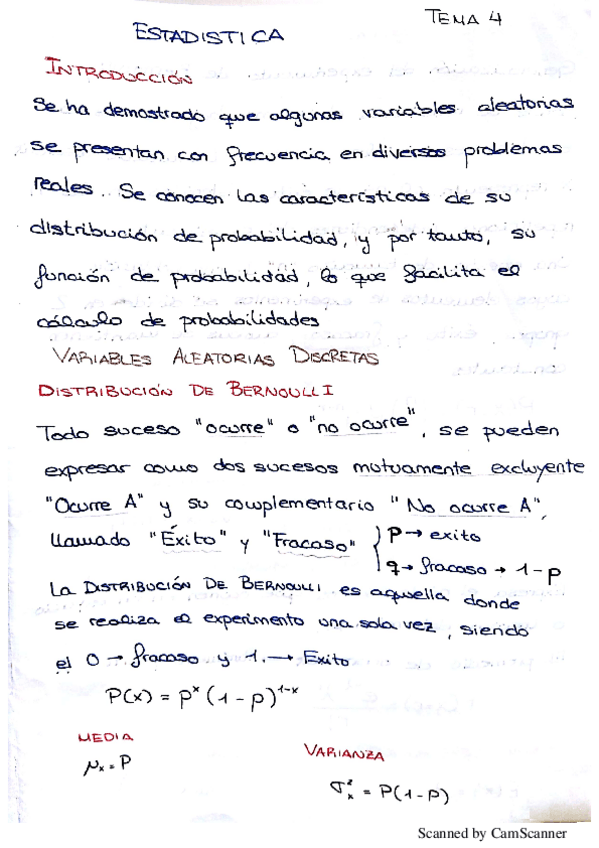 TEMA 4
ESTADISTICA
INTRODUCCIÓN
Se ha demostrado que algunas variables aleatorias
se presentan con frecuencia en diversos problemas
reales. Se conocen las características de su
distribución de probabilidad, y por tanto, su
función de probabilidad, lo que facilita el
cálculo de probabilidades
VARIABLES ALEATORIAS DISCRETAS
DISTRIBUCIÓN DE BERNOULLI
Todo suceso "ocurre" o "no ocurre", se pueden
expresar como dos sucesos mutuamente excluyente
"Ocurre A" y su complementario "No ocurre A",
llamado "Éxito" y "Fracaso" } P → exito
q → fracaso → 1-p
La DISTRIBUCIÓN DE BERNOULLI es aquella donde
se realiza el experimento una sola vez, siendo
el 0 → fracaso y 1. → Exito
P(x) = pˣ (1-p)¹⁻ˣ
MEDIA
μₓ = P
VARIANZA
σ²ₓ = P(1-P)
Scanned by CamScanner